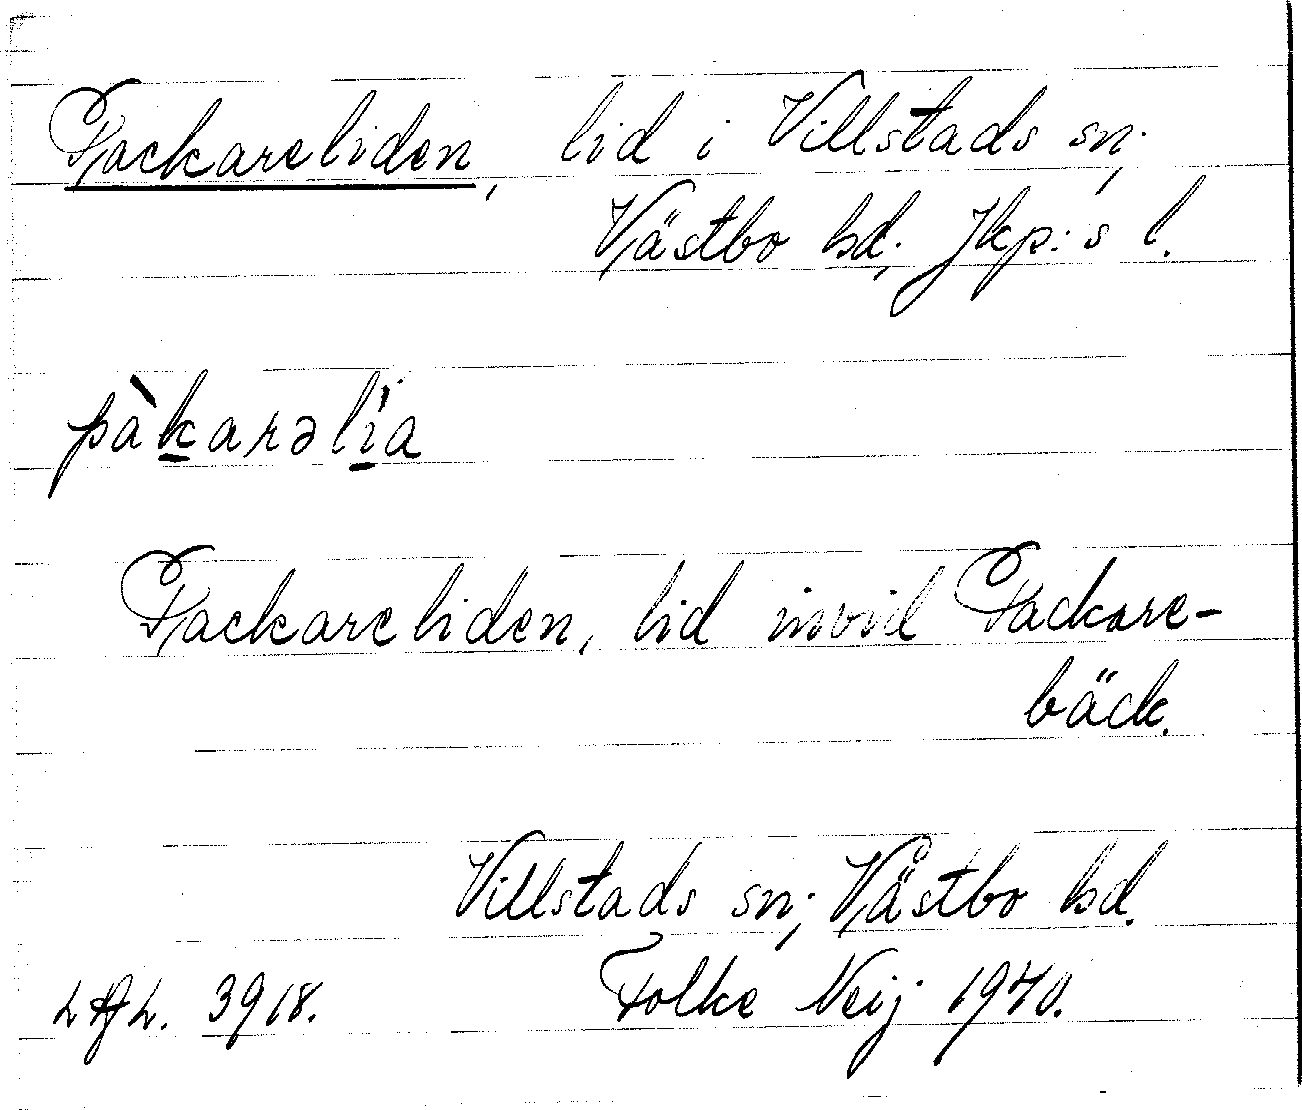 Packareliden, lid i Villstads sn;
Västbo hd; Jkp:s l.
pàkarəlia
Packareliden, lid invid Packare-
bäck.
Villstads sn; Västbo hd.
LAL. 3918. Folke Neij 1940.